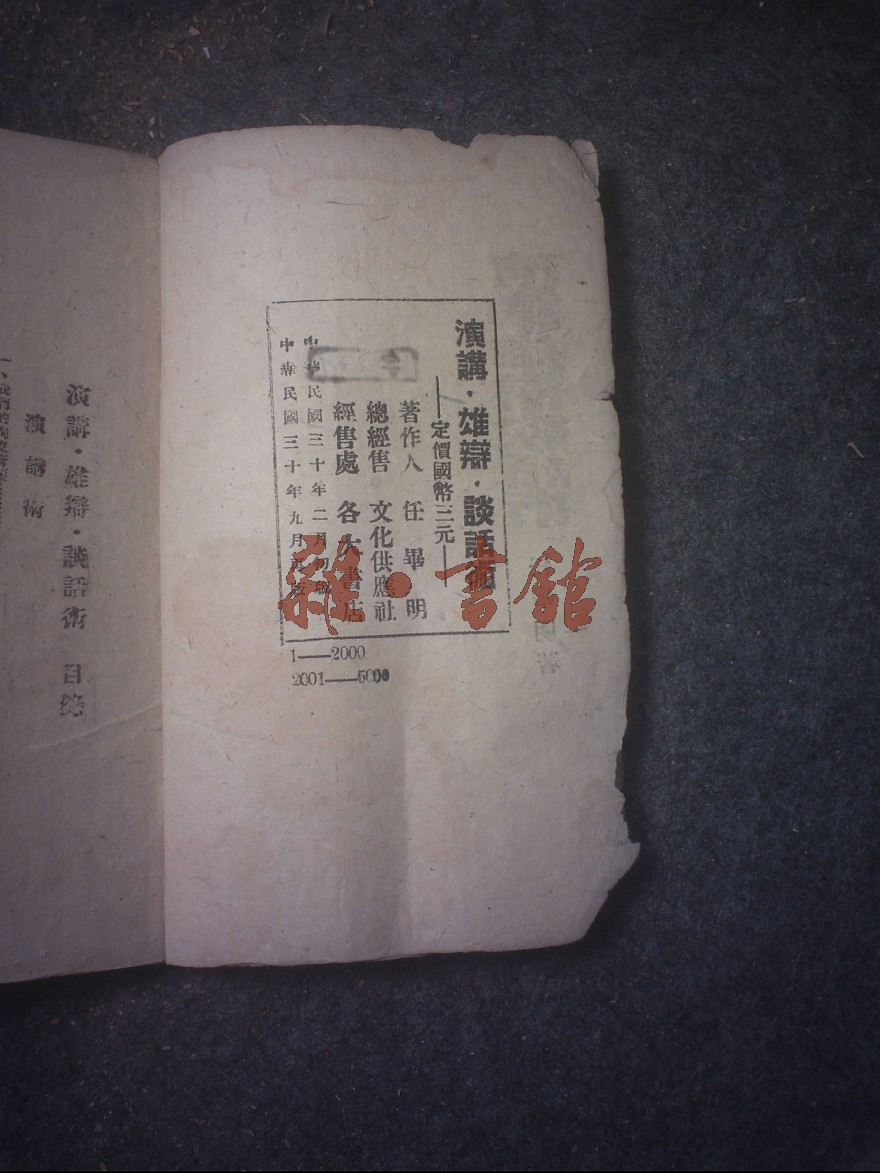 演講·雄辯·談話術
——定價國幣三元——
著作人 任畢明
總經售 文化供應社
經售處 各大書店
中華民國三十年二月初版
中華民國三十年九月
1——2000
2001——5000
雜·書館
演講·雄辯·談話術 目錄
演講術